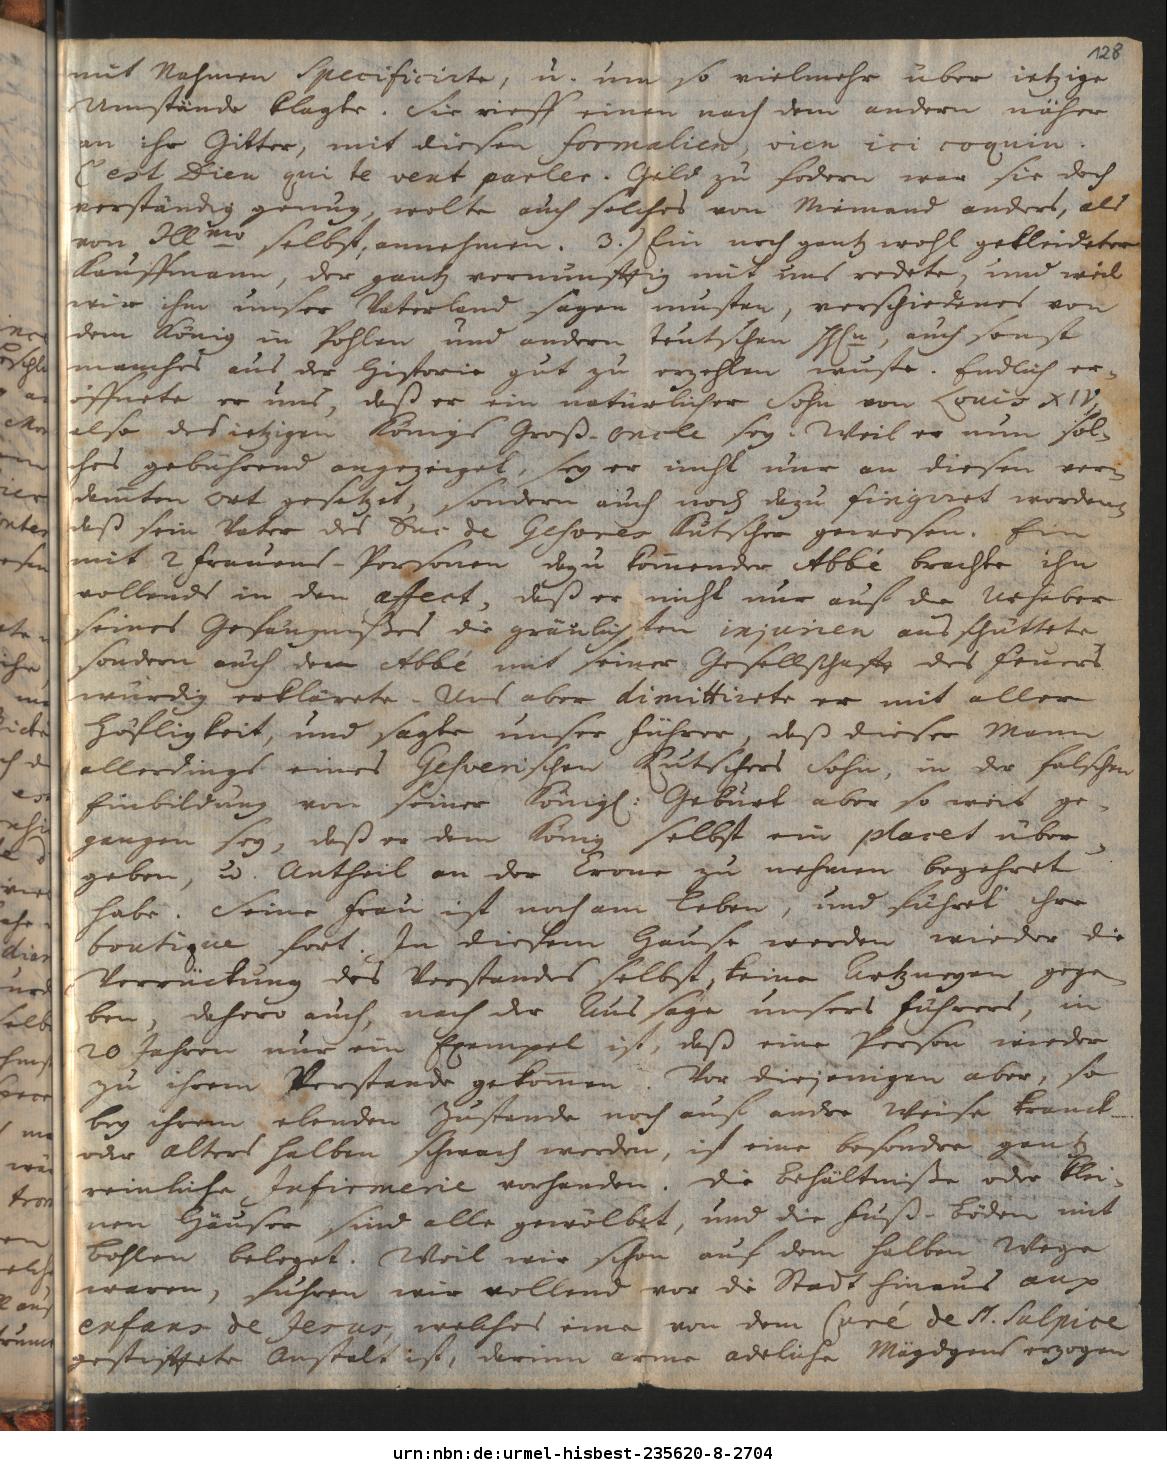 128
mit Nahmen specificirte, u. um so vielmehr über ietzige
Umstände klagte. Sie rieff einen nach dem andern näher
an ihr Gitter, mit diesen formalien, vien ici coquin.
C'est Dieu qui te veut parler. Geld zu fodern war sie doch
verständig genug, wolte auch solches von Niemand anders, als
von Illmo selbst, annehmen. 3.) Ein noch gantz wohl gekleideter
Kauffmann, der gantz vernünfftig mit uns redete, und weil
wir ihm unser Vaterland sagen musten, verschiedenes von
dem König in Pohlen und andern teutschen , auch sonst
manches aus der Historie gut zu erzehlen wuste. Endlich er-
öffnete er uns, daß er ein natürlicher Sohn von Louis XIV,
also des ietzigen Königs Groß-oncle sey. Weil er nun sol-
ches gebührend angezeiget, sey er nicht nur an diesen ver-
damten Ort gesetzet, sondern auch noch dazu fingiret worden,
daß sein Vater des Duc de Gesvres Kutscher gewesen. Ein
mit 2 Frauens-Personen dazu komender Abbé brachte ihn
vollends in den affect, daß er nicht nur auf die Urheber
seines Gefängnißes die gräulichsten injurien ausschüttete,
sondern auch dem Abbé mit seiner Gesellschafft des Feuers
würdig erklärete. Uns aber dimittirete er mit aller
Höfligkeit, und sagte unser Führer, daß dieser Mann
allerdings eines Gesverischen Kutschers Sohn, in der falschen
Einbildung von seiner Königl: Geburt aber so weit ge-
gangen sey, daß er dem König selbst ein placet über-
geben, u. Antheil an der Crone zu nehmen begehret
habe. Seine Frau ist noch am Leben, und führet ihre
boutique fort. In diesem Hause werden wieder die
Verrückung des Verstandes selbst, keine Artzneyen gege-
ben, dahero auch, nach der Aussage unsers Führers, in
20 Jahren nur ein Exempel ist, daß eine Person wieder
zu ihrem Verstande gekomen. Vor diejenigen aber, so
bey ihrem elenden Zustande noch auf andre Weise kranck-
oder Alters halben schwach werden, ist eine besondre gantz
reinliche Infirmerie vorhanden. Die Behältniße oder klei-
nen Häuser sind alle gewölbet, und die Fuß-Böden mit
Bohlen beleget. Weil wir schon auf dem halben Wege
waren, fuhren wir vollend vor die Stadt hinaus aux
enfans de Jesus, welches eine von dem Curé de St. Sulpice
gestifftete Anstalt ist, darinn arme adeliche Mägdgens erzogen
urn:nbn:de:urmel-hisbest-235620-8-2704